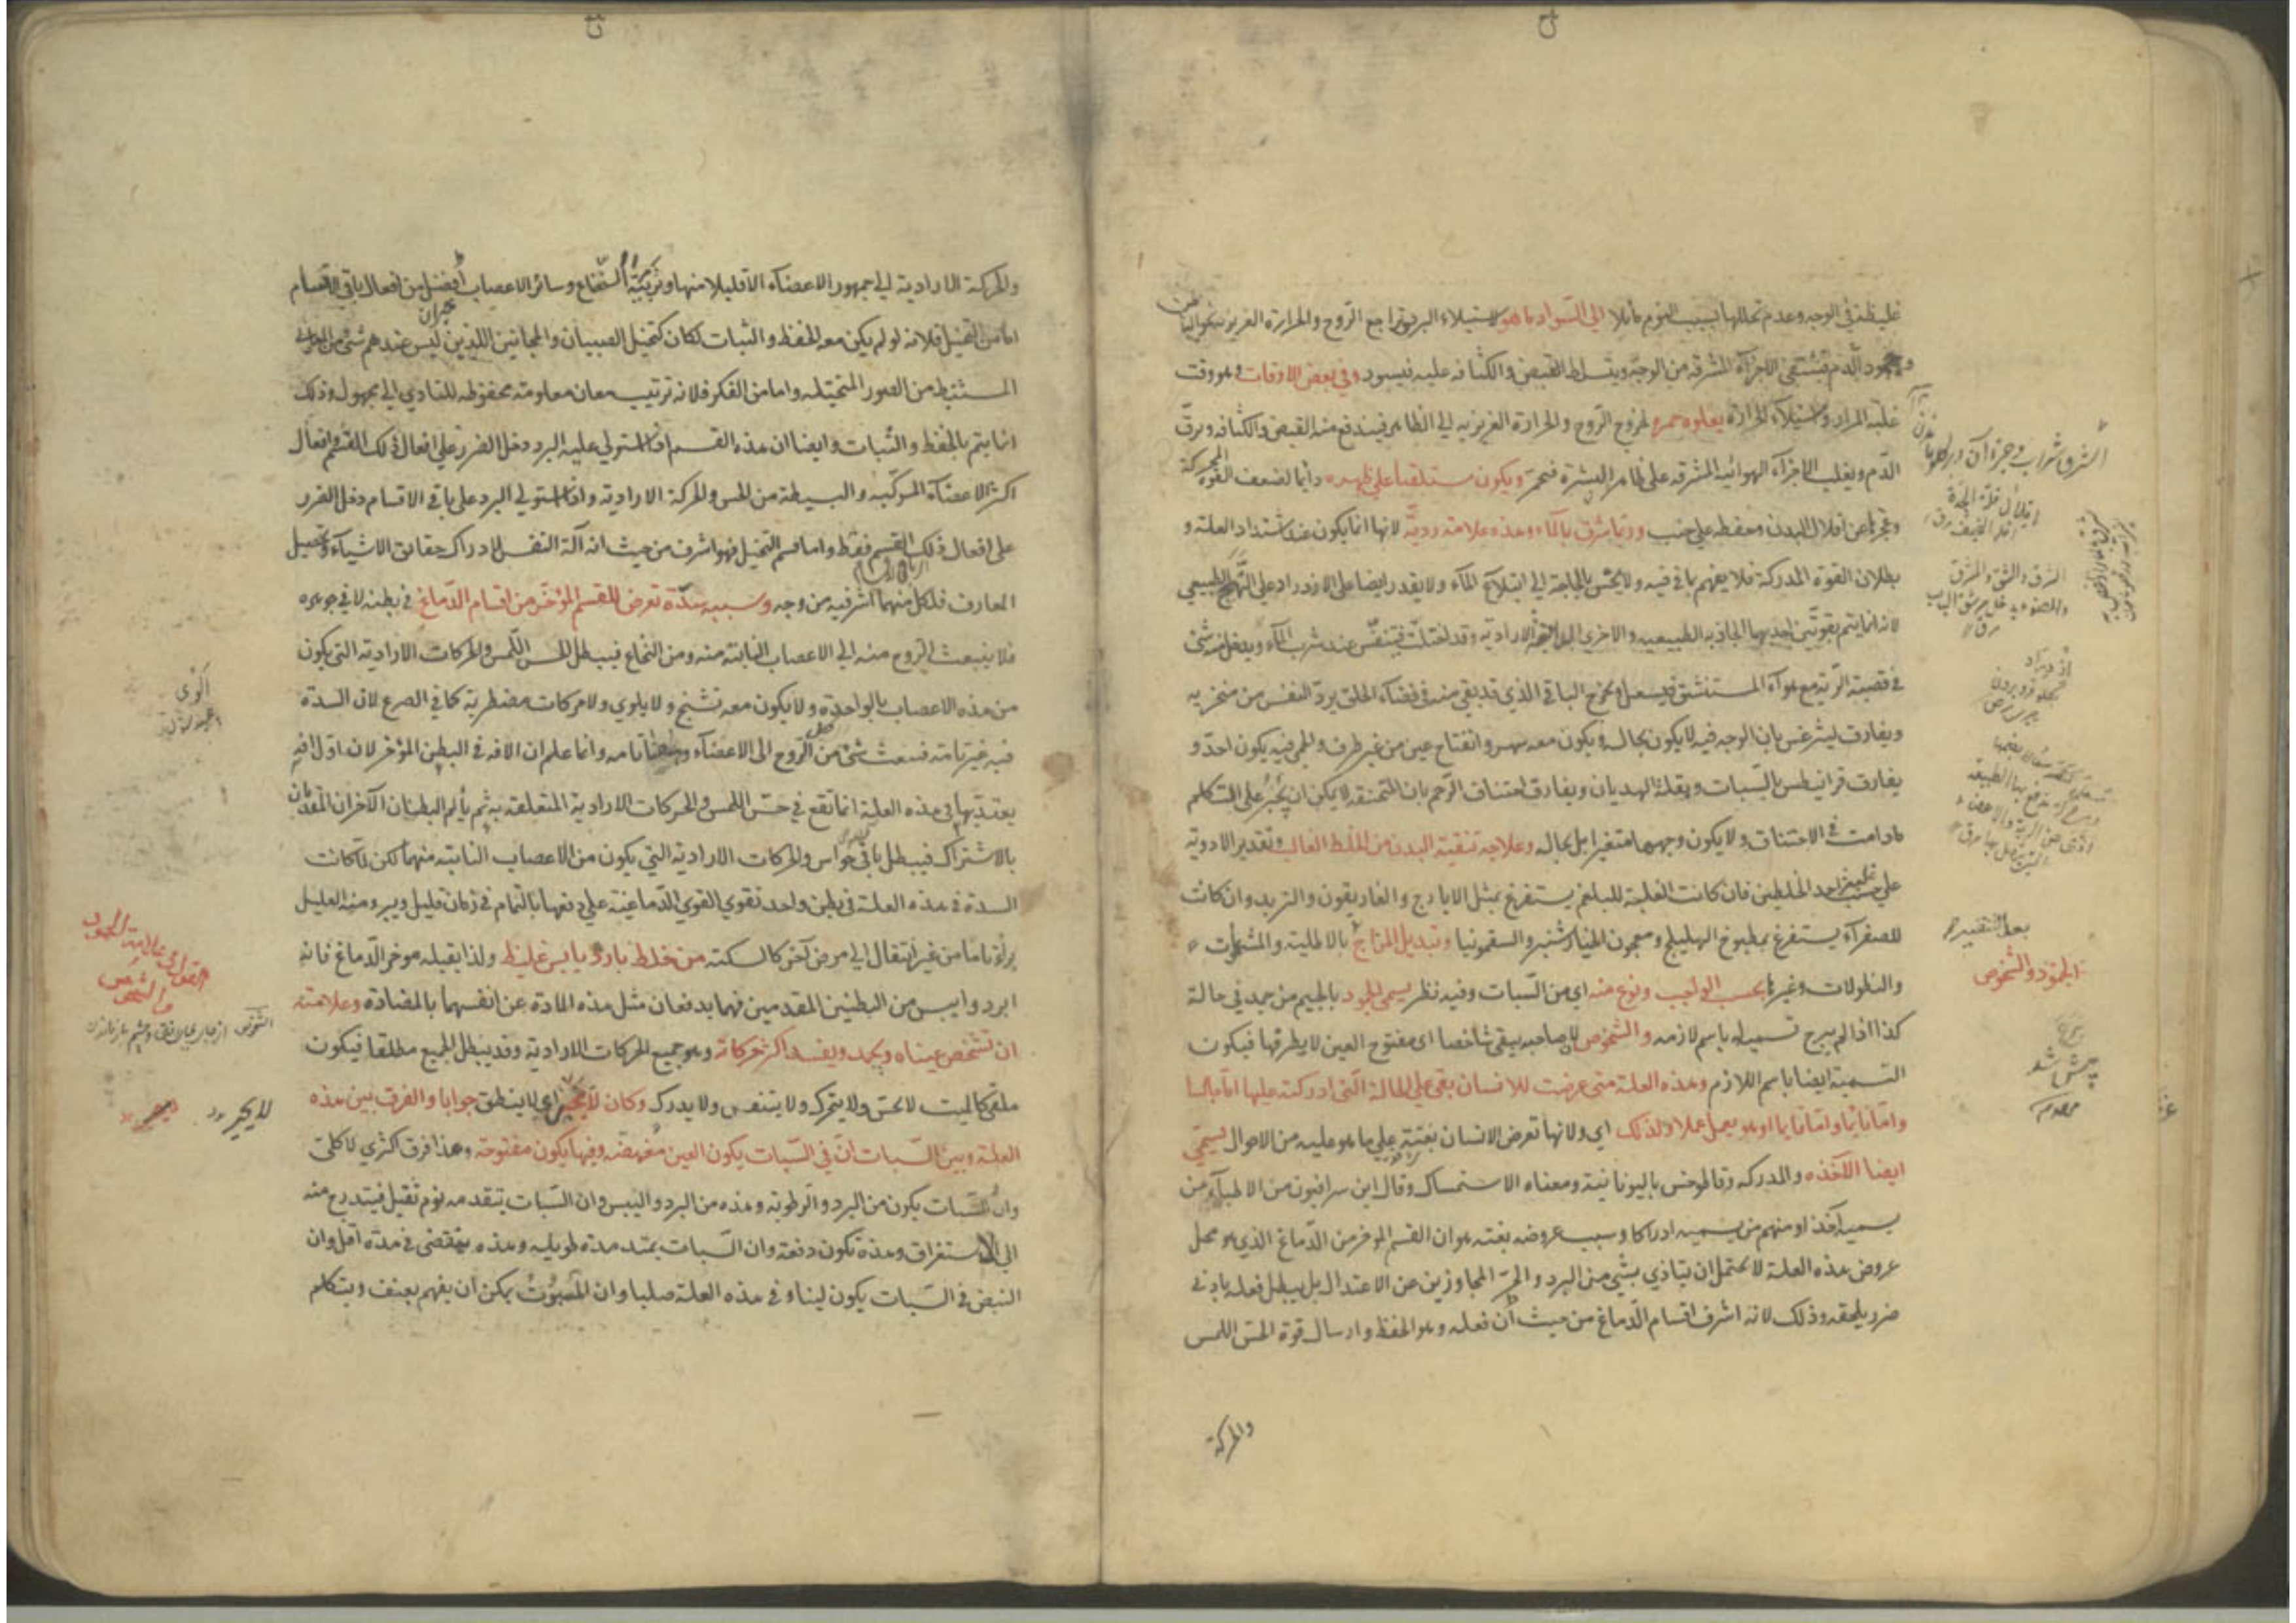 غليظة في الوجه وعدم تحللها بسبب النوم مائلا الي السواد ما هو لاستيلاء البرد وتراجع الروح والحرارة الغريزية نحو الباطن
وجمود الدم فينتفي الاجزاء المشرقه من الوجه ويتسلط القبض والكثافه عليه فيسود وفي بعض الاوقات وهو وقت
غلبة المرار واستيلاء الحرارة يعلوه حمرة لخروج الروح والحرارة الغريزيه الي الظاهر فيندفع منه القبض والكثافه ويرق
الدم ويغلب الاجزاء الهوائيه المشرقه على ظاهر البشرة فتحمر ويكون مستلقيا علي ظهره دائما لضعف القوة المحركة
وعجزها عن اقلال البدن وحفظه علي جنب وربما شرق بالماء وهذه علامة رديّة لانها انما يكون عند اشتداد العلة و
بطلان القوة المدركة فلا يفهم ما في فيه ولا يحس بالحاجة الي ابتلاع الماء ولا يقدر ايضا على الازدراد علي النهج الطبيعي
لانه انما يتم بقوتين احديهما الجاذبه الطبيعيه والاخري الدافعة الارادية وقد اختلت فيتنفس عند شرب الماء ويدخل منه شئ
في قصبة الرية مع هواء المستنشق فيسعل ويخرج الباقي الذي قد بقي منه في فضاء الحلق يردّ النفس من منخريه
ويفارق ليثرغس بان الوجه فيه لا يكون بحاله ويكون معه سهر وانفتاح عين من غير طرف والحمي فيه يكون احدّ و
يفارق قرانيطس بالسبات وبقلة الهذيان ويفارق اختناق الرحم بان المختنقة لا يمكن ان يجبر على التكلم
ما دامت في الاختناق ولا يكون وجهها متغيرا بل بحاله وعلاجه تنقية البدن من الخلط الغالب وتقدير الادوية
علي حسب غلبة احد الخلطين فان كانت الغلبة للبلغم يستفرغ بمثل الايارج والغاريقون والتربد وان كانت
للصفراء يستفرغ بمطبوخ الهليلج ومعجون الخيارشنبر والسقمونيا وتبديل المزاج بالاطلية والمشمومات
والنطولات وغيرها بحسب الواجب ونوع منه اي من السبات وفيه نظر يسمى الجمود بالجيم من جمد في حالة
كذا اذا لم يبرح تسمية له باسم لازمه والشخوص لان صاحبه يبقي شاخصا اي مفتوح العين لا يطرفها فيكون
التسمية ايضا باسم اللازم وهذه العلة متى عرضت للانسان بقي علي الحالة التي ادركته عليها اما جالسا
واما نائما واما قائما او هو يعمل عملا ولذلك اي ولانها تعرض الانسان بغتة علي ما هو عليه من الاحوال يسمّي
ايضا الآخذه والمدركه وقاطوخس باليونانية ومعناه الاستمساك وقال ابن سرافيون من الاطباء من
يسميه آخذا ومنهم من يسميه ادراكا وسبب عروضه بغتة هو ان القسم المؤخر من الدماغ الذي هو محل
عروض هذه العلة لا يحتمل ان يتاذي بشئ من البرد والحر المجاوزين عن الاعتدال بل يبطل فعله بادني
ضرر يلحقه وذلك لانه اشرف اقسام الدماغ من حيث ان فعله وهو الحفظ وارسال قوة الحس اللمس
والحركة
بعد التنقية
الجمود والشخوص
والحركة الارادية الي جمهور الاعضاء الا قليلا منها وتربية النخاع وسائر الاعصاب افضل من افعال باقي الاقسام
اما من التخيل فلانه لو لم يكن معه الحفظ والثبات لكان كتخيل الصبيان والمجانين اللذين ليس عندهم شئ من
المستنبط من الصور المتخيله واما من الفكر فلانه ترتيب معان معلومة محفوظه للتادي الي مجهول وذلك
انما يتم بالحفظ والثبات وايضا ان هذه القسم اذا استولي عليه البرد دخل الضرر علي افعال ذلك القسم وافعال
اكثر الاعضاء المركبه والبسيطة من الحس والحركة الارادية واذا استولي البرد على باقي الاقسام دخل الضرر
على افعال ذلك القسم فقط واما قسم التخيل فهو اشرف من حيث انه آلة النفس لادراك حقايق الاشياء وتحصيل
المعارف فلكل منهما اشرفيه من وجه وسببه سدّة تعرض للقسم المؤخر من اقسام الدماغ في بطنه لا في جوهره
فلا ينبعث الروح منه الي الاعصاب النابتة منه ومن النخاع فيبطل الحس اللمس والحركات الارادية التي يكون
من هذه الاعصاب بالواحدة ولا يكون معه تشنج ولا يلوي ولا حركات مضطربة كما في الصرع لان السدة
فيه غير تامة فينبعث شئ من الروح الى الاعضاء وههنا تامه وانما علم ان الافه في البطن المؤخر لان اول افه
يعتد بها في هذه العلة انما تقع في حس اللمس والحركات الارادية المتعلقه به ثم يألم البطنان الآخران المقدمان
بالاشتراك فيبطل باقي حواس والحركات الارادية التي يكون من الاعصاب النابته منهما لكن لما كانت
السدة في هذه العلة في بطن واحد تقوي القوي الدماغية علي دفعها بالتمام في زمان قليل ويبرء منه العليل
برءا تاما من غير انتقال الي مرض آخر كالسكته من خلط بارد يابس غليظ ولذا يقبله موخر الدماغ فانه
ابرد وايبس من البطنين المقدمين فهما يدفعان مثل هذه المادة عن انفسهما بالمضادة وعلامته
ان تشخص عيناه ويجمد ويفسد اكثر حركاته وهو جميع الحركات الارادية وقد يبطل الجميع مطلقا فيكون
ملقي كالميت لا يحس ولا يتحرك ولا يتنفس ولا يدرك وكان لا يحير اي لا ينطق جوابا والفرق بين هذه
العلة وبين السبات ان في السبات يكون العين مغمضة وفيها يكون مفتوحة وهذا فرق اكثري لا كلي
وان السبات يكون من البرد والرطوبة وهذه من البرد واليبس وان السبات يتقدمه نوم ثقيل فيتدرج منه
الي الاستغراق وهذة تكون دفعة وان السبات يمتد مدة طويله وهذه ينقضي في مدة اقل وان
النبض في السبات يكون لينا وفي هذه العلة صلبا وان المسبوت يمكن ان يفهم بعنف ويتكلم